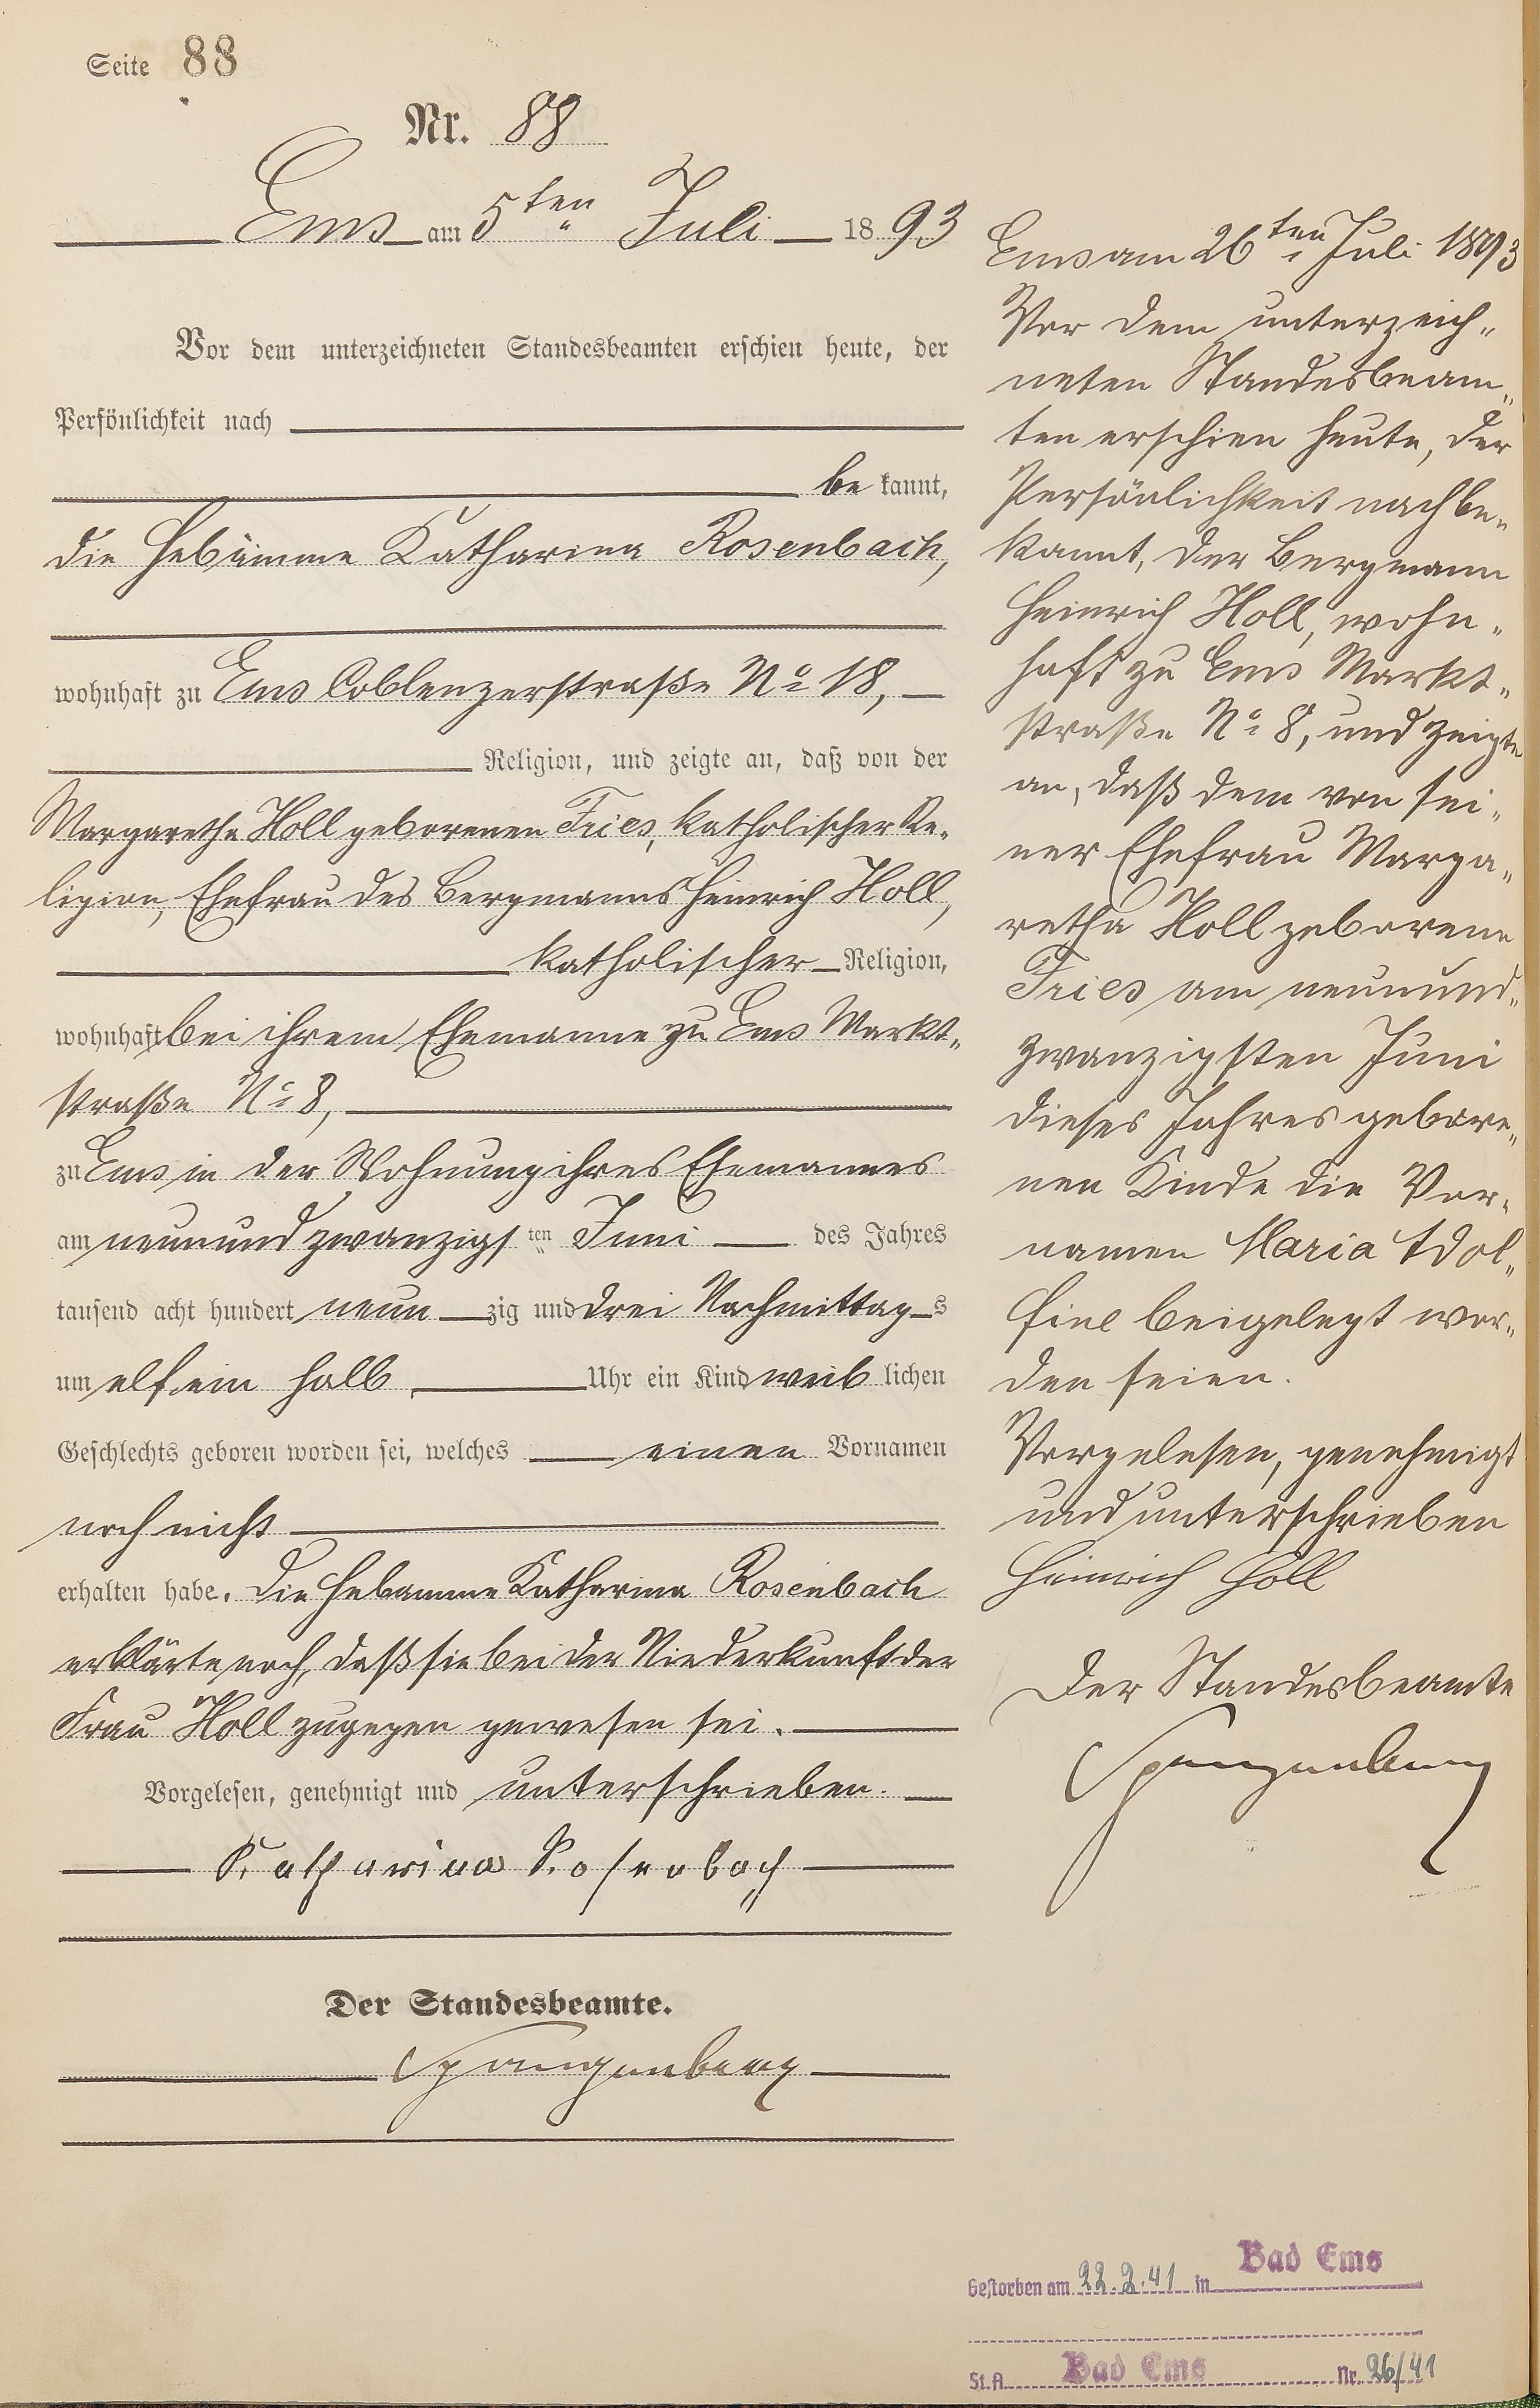 Seite 88
Nr. 88
Ems am 5ten Juli 1893
Vor dem unterzeichneten Standesbeamten erschien heute, der
Persönlichkeit nach
be kannt,
die Hebamme Katharina Rosenbach,
wohnhaft zu Ems Coblenzerstraße No 18,
Religion, und zeigte an, daß von der
Margaretha Holl geborenen Fries, katholischer Re-
ligion, Ehefrau des Bergmanns Heinrich Holl,
katholischer Religion,
wohnhaft bei ihrem Ehemanne zu Ems Markt-
straße No 8,
zu Ems in der Wohnung ihres Ehemannes
am neunundzwanzigsten Juni des Jahres
tausend acht hundert neunzig und drei Nachmittags
um elf ein halb Uhr ein Kind weiblichen
Geschlechts geboren worden sei, welches einen Vornamen
noch nicht
erhalten habe. Die Hebamme Katharina Rosenbach
erklärte noch, daß sie bei der Niederkunft der
Frau Holl zugegen gewesen sei.
Vorgelesen, genehmigt und unterschrieben.
Katharina Rosenbach
Der Standesbeamte.
Spangenberg
Ems am 26ten Juli 1893
Vor dem unterzeich-
neten Standesbeam-
ten erschien heute, der
Persönlichkeit nach be-
kannt, der Bergmann
Heinrich Holl, wohn-
haft zu Ems Markt-
straße No 8, und zeigte
an, daß dem von sei-
ner Ehefrau Marga-
retha Holl geborene
Fries am neunund-
zwanzigsten Juni
dieses Jahres gebore-
nen Kinde die Vor-
namen Maria Adol-
fine beigelegt wor-
den seien.
Vorgelesen, genehmigt
und unterschrieben
Heinrich Holl
Der Standesbeamte
Spangenberg
Gestorben am 22.2.41 in Bad Ems
St.A. Bad Ems Nr. 26/41